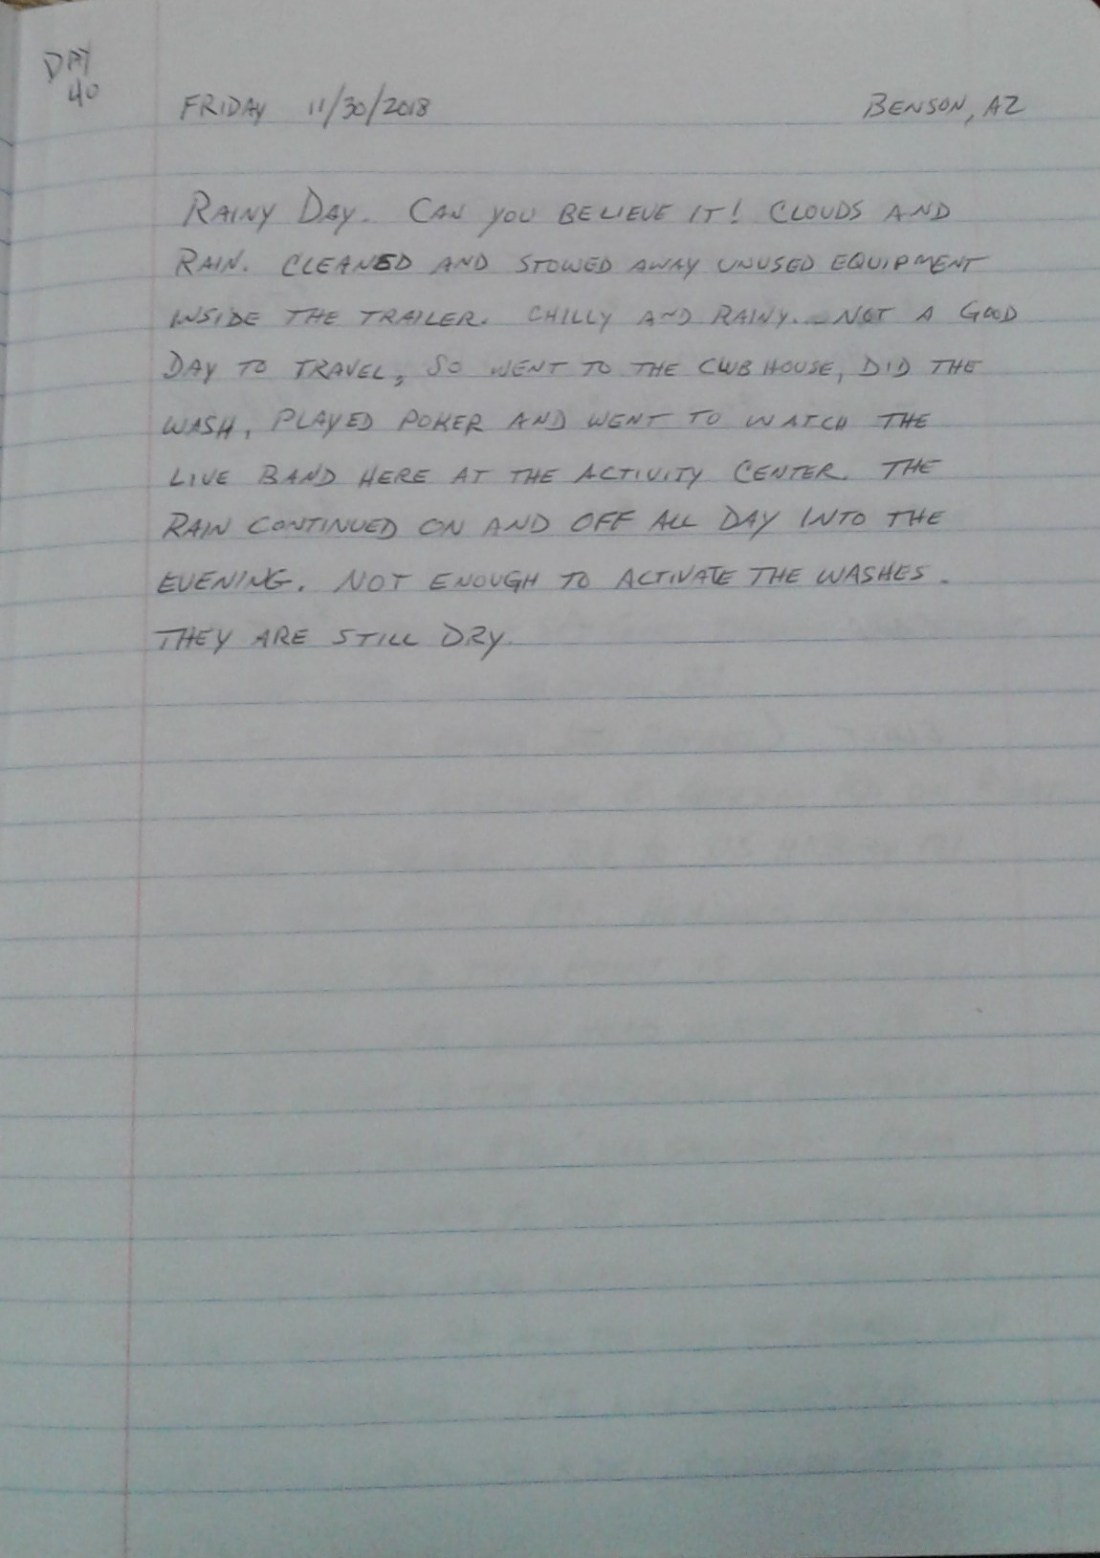 DAY
40
FRIDAY 11/30/2018 BENSON, AZ
RAINY DAY. CAN YOU BELIEVE IT! CLOUDS AND
RAIN. CLEANED AND STOWED AWAY UNUSED EQUIPMENT
INSIDE THE TRAILER. CHILLY AND RAINY. NOT A GOOD
DAY TO TRAVEL, SO WENT TO THE CLUB HOUSE, DID THE
WASH, PLAYED POKER AND WENT TO WATCH THE
LIVE BAND HERE AT THE ACTIVITY CENTER. THE
RAIN CONTINUED ON AND OFF ALL DAY INTO THE
EVENING. NOT ENOUGH TO ACTIVATE THE WASHES.
THEY ARE STILL DRY.